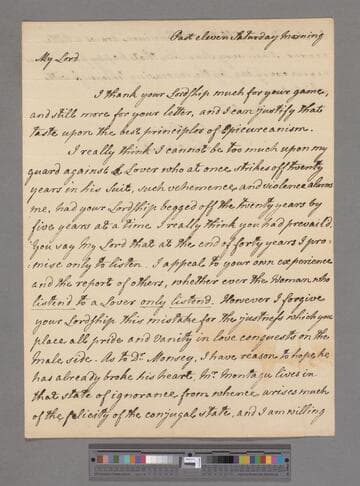 Past eleven Saturday Morning
My Lord
I thank your Lordship much for your game,
and still more for your letter, and I can justify that
taste upon the best principles of Epicureanism.
I really think I cannot be too much upon my
guard against a Lover who at once strikes off twenty
years in his Suit, such vehemence and violence alarms
me, had your Lordship begged off the twenty years by
five years at a time I really think you had prevaild.
You say my Lord that at the end of forty years I pro-
-mise only to listen. I appeal to your own experience
and the report of others, whether ever the Woman who
listend to a Lover only listend. However I forgive
your Lordship this mistake for the justness which you
place all pride and Vanity in love conquests on the
Male side. As to Dr. Monsey, I have reason to hope he
has already broke his heart, Mr. Montagu lives in
that state of ignorance from whence arises much
of the felicity of the conjugal state, and I am willing